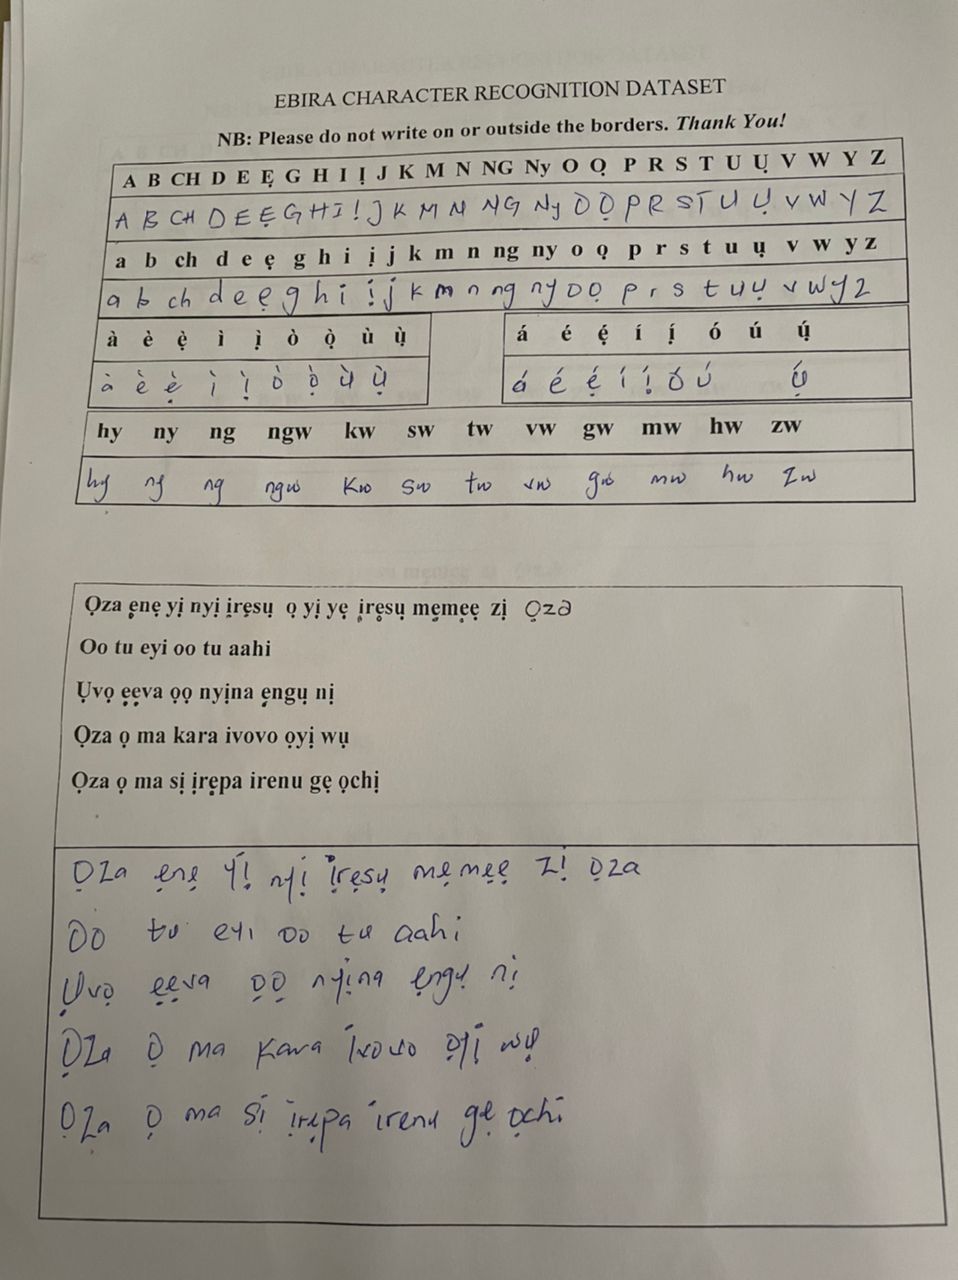 EBIRA CHARACTER RECOGNITION DATASET
NB: Please do not write on or outside the borders. Thank You!
A B CH D E Ẹ G H I Ị J K M N NG Ny O Ọ P R S T U Ụ V W Y Z
A B CH D E Ẹ G H I Ị J K M N NG Ny O Ọ P R S T U Ụ V W Y Z
a b ch d e ẹ g h i ị j k m n ng ny o ọ p r s t u ụ v w y z
a b ch d e ẹ g h i ị j k m n ng ny o ọ p r s t u ụ v w y z
à è ẹ̀ ì ị̀ ò ọ̀ ù ụ̀
á é ẹ́ í ị́ ó ú ụ́
à è ẹ̀ ì ị̀ ò ọ̀ ù ụ̀
á é ẹ́ í ị́ ó ú ụ́
hy ny ng ngw kw sw tw vw gw mw hw zw
hy ny ng ngw kw sw tw vw gw mw hw zw
Ọza ẹnẹ yị nyị ịrẹsụ ọ yị yẹ ịrẹsụ mẹmẹẹ zị ọza
Oo tu eyi oo tu aahi
Ụvọ ẹẹva ọọ nyịna ẹngụ nị
Ọza ọ ma kara ivovo ọyị wụ
Ọza ọ ma sị ịrẹpa irenu gẹ ọchị
Ọza ẹnẹ yị nyị ịrẹsụ mẹmẹẹ zị ọza
Oo tu eyi oo tu aahi
Ụvọ ẹẹva ọọ nyịna ẹngụ nị
Ọza ọ ma kara ivovo ọyị wụ
Ọza ọ ma sị ịrẹpa irenu gẹ ọchi